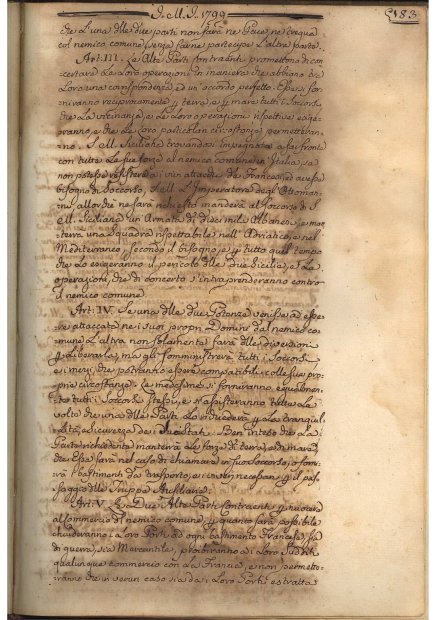 I. M. I. 1799
183
che L'una delle due parti non farà nè Pace, nè tregua
col nemico comune, senza farne partecipe L'altra parte.
Art: III. Le Alte Parti contraenti promettono di con
certare Le Loro operazioni in maniera che abbiano da
Loro una corrispondenza ed un accordo perfetto. Esse si for
niranno reciprocamente per terra, e per mare tutti i Soccorsi
che La vicinanza, e Le Loro operazioni rispettive esige
ranno, e che Le Loro particolari circostanze permetteran
no. S. M. Siciliana trovandosi impegnata a far fronte
con tutte Le sue forze al nemico comune in Italia, se
non potesse resistere a un attacco de' Francesi, ed avesse
bisogno di Soccorso, S. M. L'Imperatore degli Ottoman
ni, allorchè ne sarà richiesto manderà al Soccorso di S.
M. Siciliana un Armata di diecimila Albanesi, e man
terrà una Squadra rispettabile nell'Adriatico, e nel
Mediterraneo, secondo il bisogno, e per tutto quel tempo
che Lo esigeranno il pericolo delle due Sicilie, e Le
operazioni, che di concerto s'intraprenderanno contro
il nemico comune.
Art: IV. Se una delle due Potenze venisse ad esse
re attaccata nei suoi proprj Dominj dal nemico co
mune L'altra non solamente farà delle diversioni
per liberarla, ma gli somministrerà tutti i Soccorsi
e i mezzi, che potranno essere compatibili colle sue pro
prie circostanze. Le medesime si forniranno egualmen
te tutti i Soccorsi stessi, e si assisteranno tutte Le
volte che una delle Parti Lo richiederà per La tranquil
lità, e sicurezza de' suoi Stati. Ben inteso che La
Parte richiedente manterrà Le forze di terra, e di mare,
che Essa sarà nel caso di chiamare in suo Soccorso, e forni
rà i bastimenti da trasporto, e i viveri necessarj per il pas
saggio delle Truppe Ausiliarie.
Art: V. Le Due Alte Parti Contraenti per nuocere
al Commercio del nemico comune, per quanto sarà possibile
chiuderanno i Loro Porti ad ogni bastimento Francese, sia
di guerra, sia Mercantile, proibiranno ai Loro Sudditi
qualunque commercio con La Francia, e non permette
ranno che in verun caso sia da i Loro Porti estratta